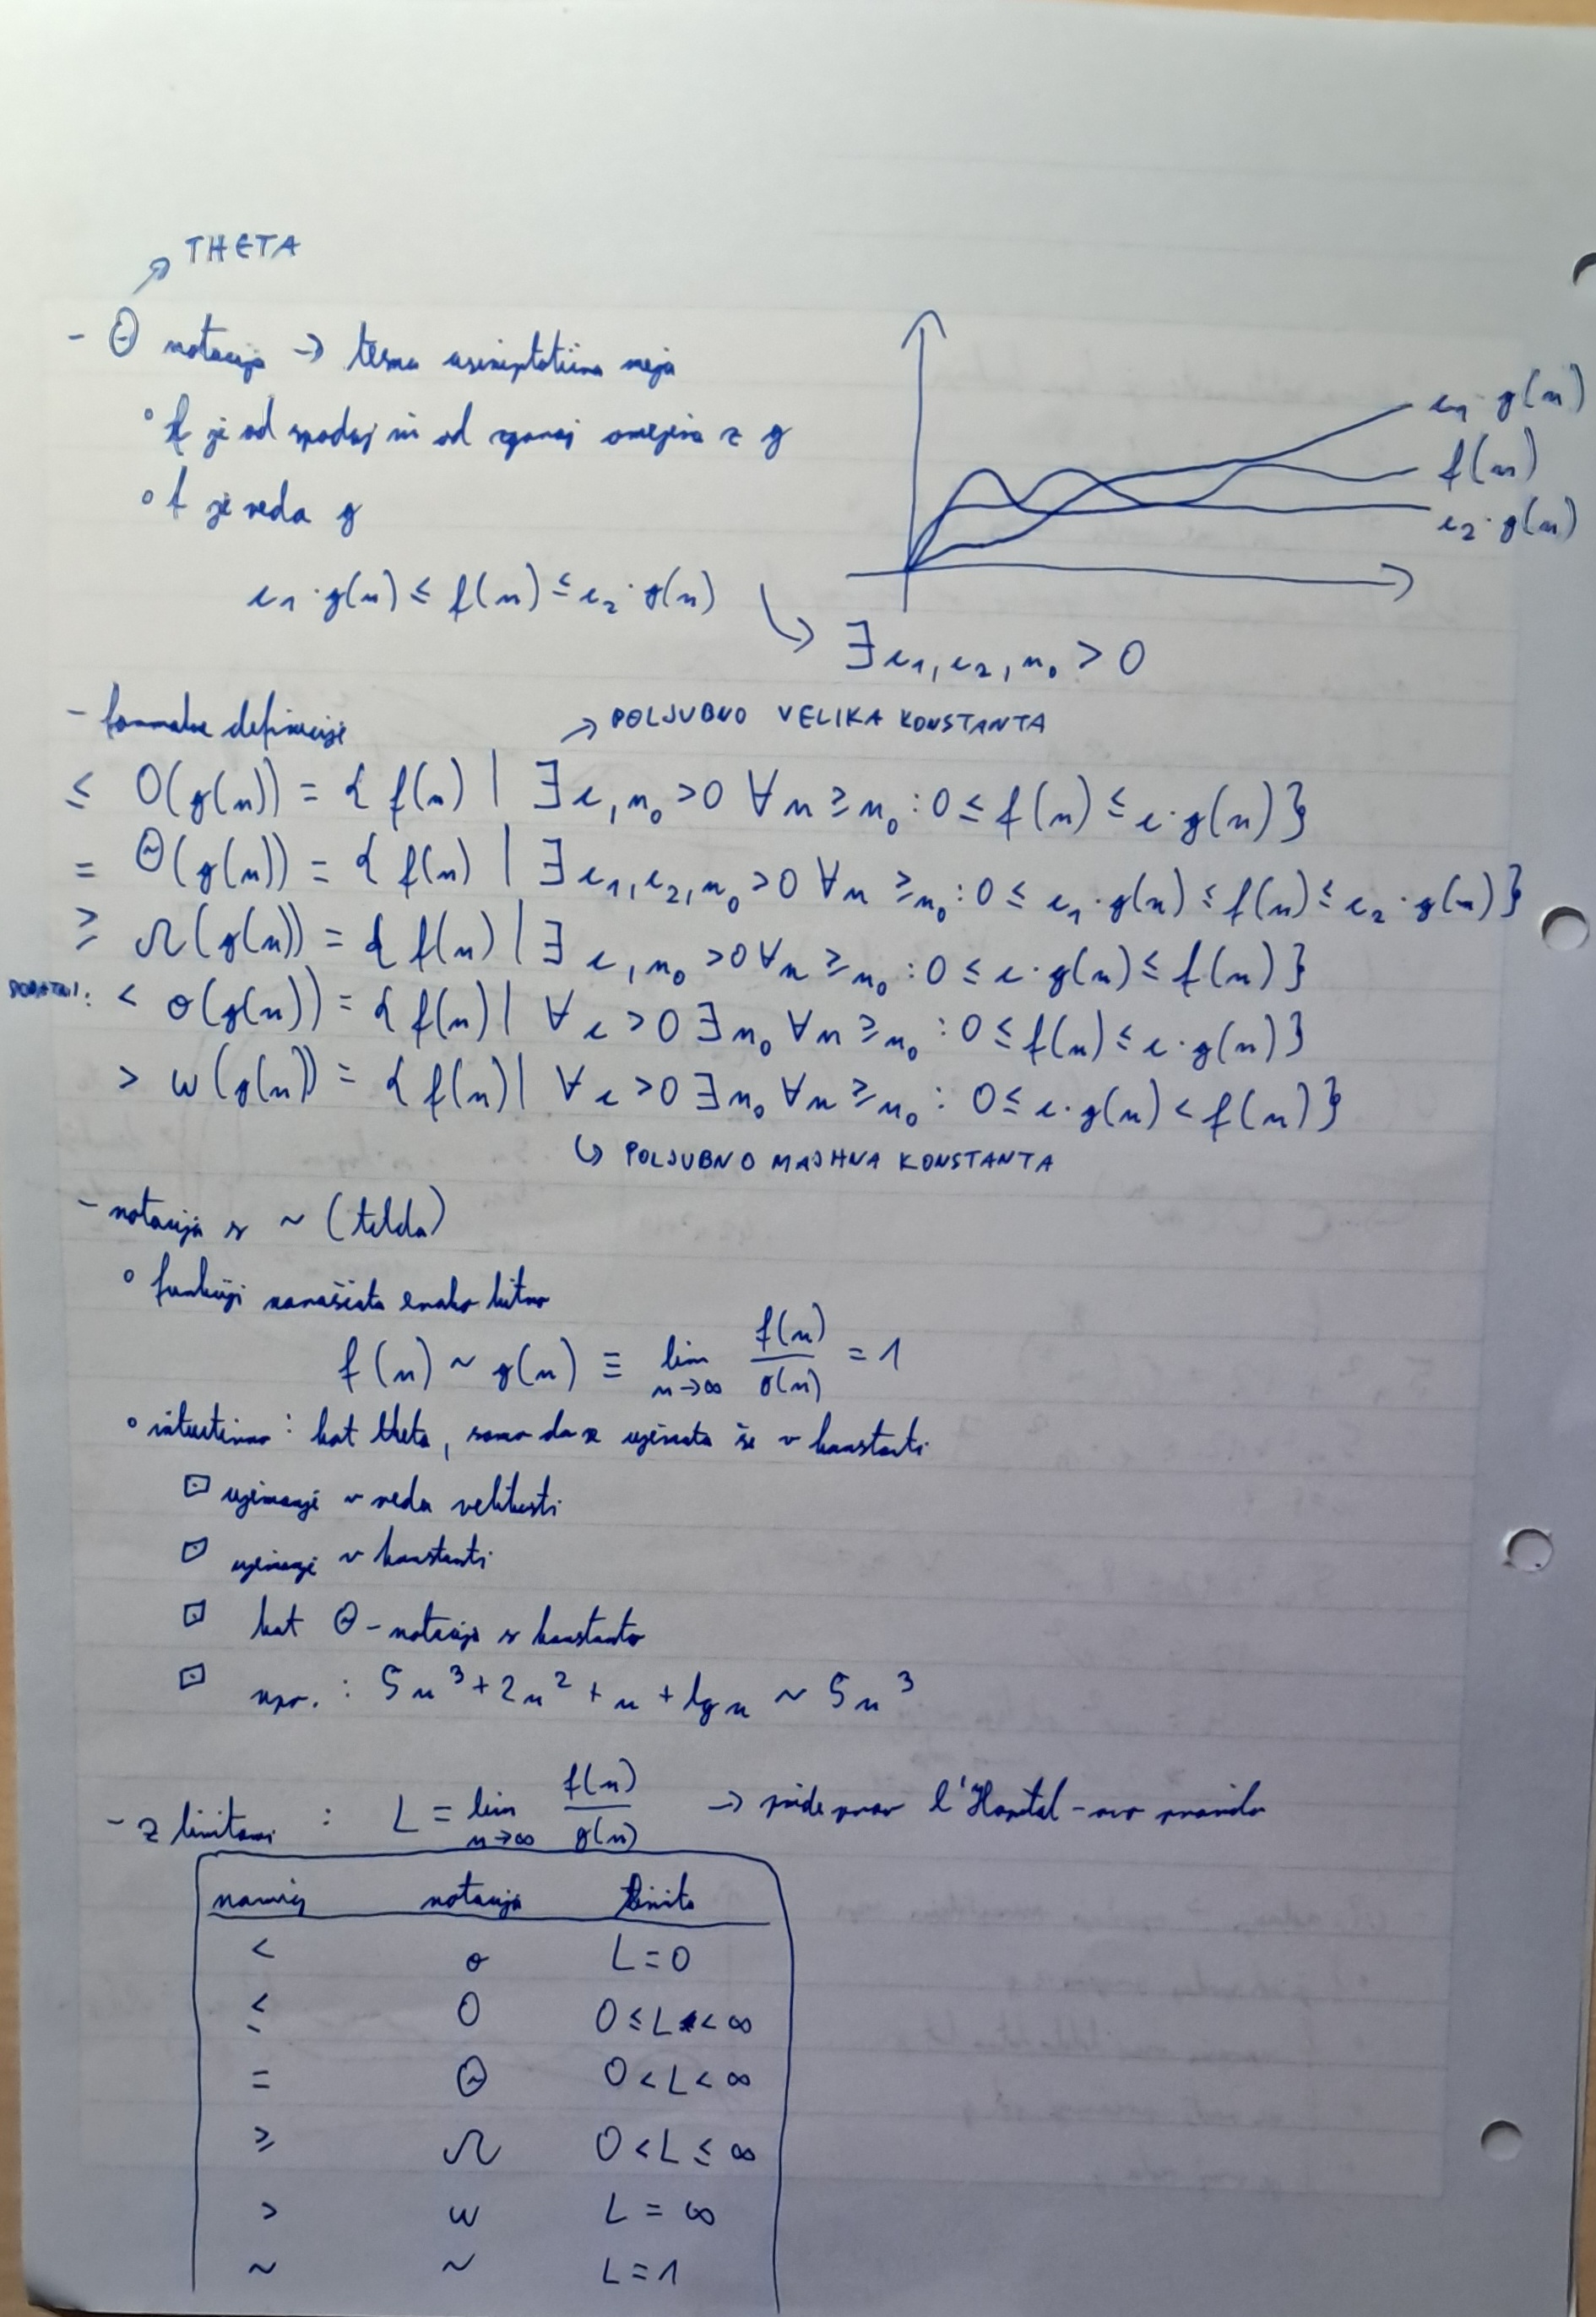 THETA
- Θ notacija → tesna asimptotična meja
° f je od spodaj in od zgoraj omejena z g
° f je reda g
c₁·g(n) ≤ f(n) ≤ c₂·g(n)
c₁·g(n)
f(n)
c₂·g(n)
∃c₁,c₂,n₀ > 0
- formalne definicije
→ POLJUBNO VELIKA KONSTANTA
≤ O(g(n)) = { f(n) | ∃c,n₀ >0 ∀n ≥ n₀ : 0 ≤ f(n) ≤ c·g(n) }
= Θ(g(n)) = { f(n) | ∃c₁,c₂,n₀ >0 ∀n ≥ n₀ : 0 ≤ c₁·g(n) ≤ f(n) ≤ c₂·g(n) }
≥ Ω(g(n)) = { f(n) | ∃c,n₀ >0 ∀n ≥ n₀ : 0 ≤ c·g(n) ≤ f(n) }
< o(g(n)) = { f(n) | ∀c >0 ∃n₀ ∀n ≥ n₀ : 0 ≤ f(n) ≤ c·g(n) }
> ω(g(n)) = { f(n) | ∀c >0 ∃n₀ ∀n ≥ n₀ : 0 ≤ c·g(n) < f(n) }
↳ POLJUBNO MAJHNA KONSTANTA
- notacija s ~ (tilda)
° funkciji naraščata enako hitro
f(n) ~ g(n) ≡ lim n→∞ f(n)/g(n) = 1
° intuitivno : kot theta, samo da se ujemata še v konstanti
▫ ujemanje v redu velikosti
▫ ujemanje v konstanti
▫ kot Θ-notacija s konstanto
▫ npr. : 5n³+2n²+n+lg n ~ 5n³
- z limitami : L = lim n→∞ f(n)/g(n) → pride prav l'Hospital-ovo pravilo
notacija limita
< o L=0
≤ O 0≤L<∞
= Θ 0<L<∞
≥ Ω 0<L≤∞
> ω L=∞
~ ~ L=1